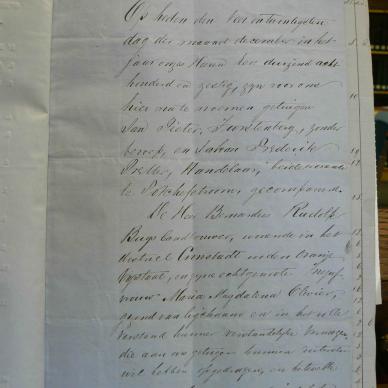 Op heden den vier en twintigsten
dag der maand december in het
jaar onzes Heeren een duizend acht
honderd en zestig, zyn voor ons
hier na te noemen getuigen
Jan Pieter, zonder
beroep, en Johan Frederik
Handelaar, beide
te Potchefstroom, gecompareerd.
De Heer Bernardus Rudolf
Buys landbouwer, wonende in het
district Cronstadt in den Oranje
Vrystaat, en zyne echtgenoote Mejuf-
vrouw Maria Magdalena
gezond van ligchaam en in het volle
verstand hunner verstandelijke vermogen,
die aan ons getuigen kunnen
wil hebben opgedragen, en